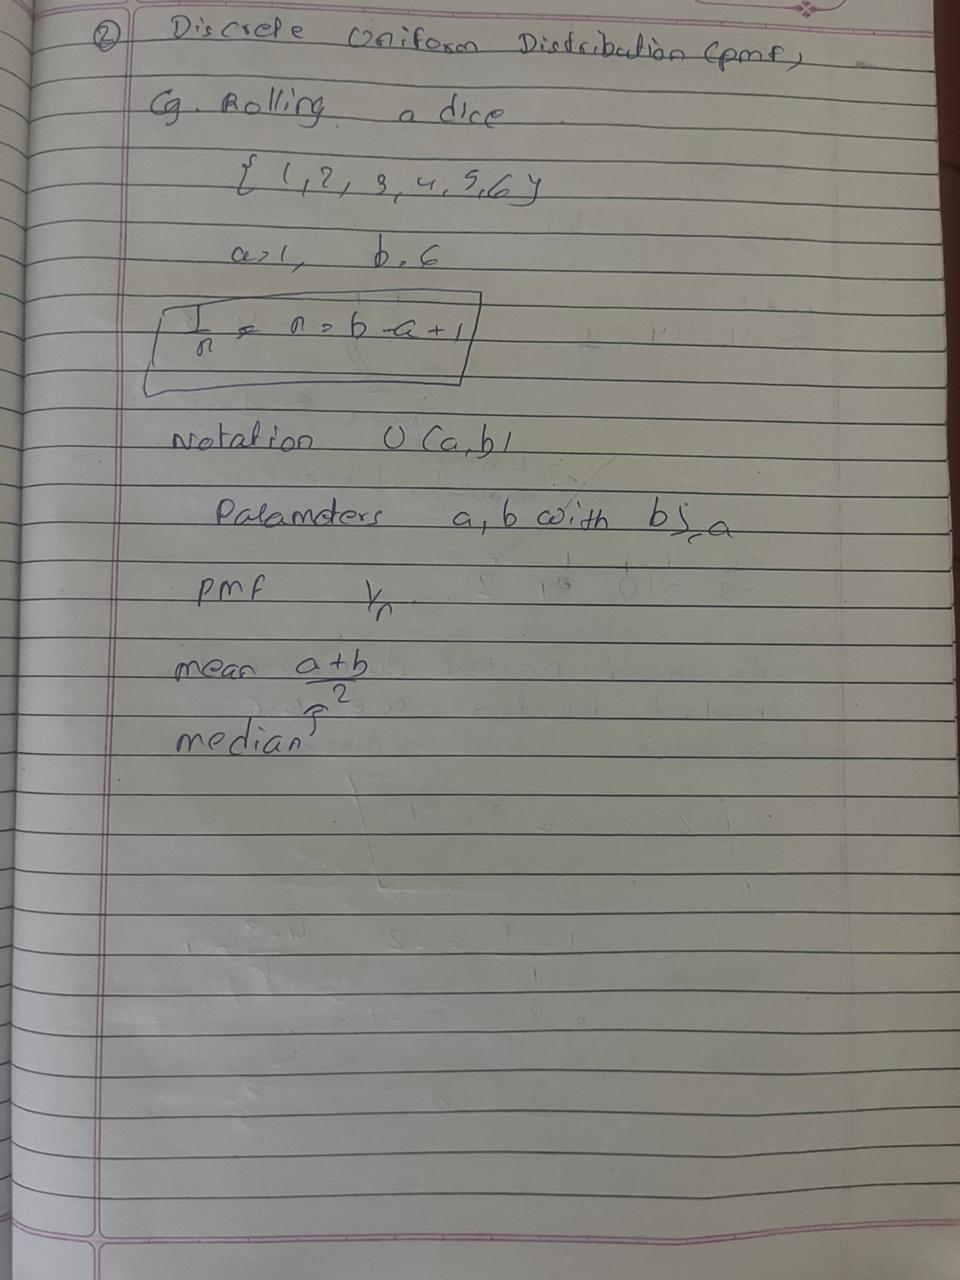 ② Discrete Uniform Distribution (pmf)
Eg. Rolling a dice
{ 1, 2, 3, 4, 5, 6 }
a=1, b=6
1/n = n = b-a+1
Notation U (a,b)
Parameters a, b with b ≥ a
pmf 1/n
mean a+b/2
median